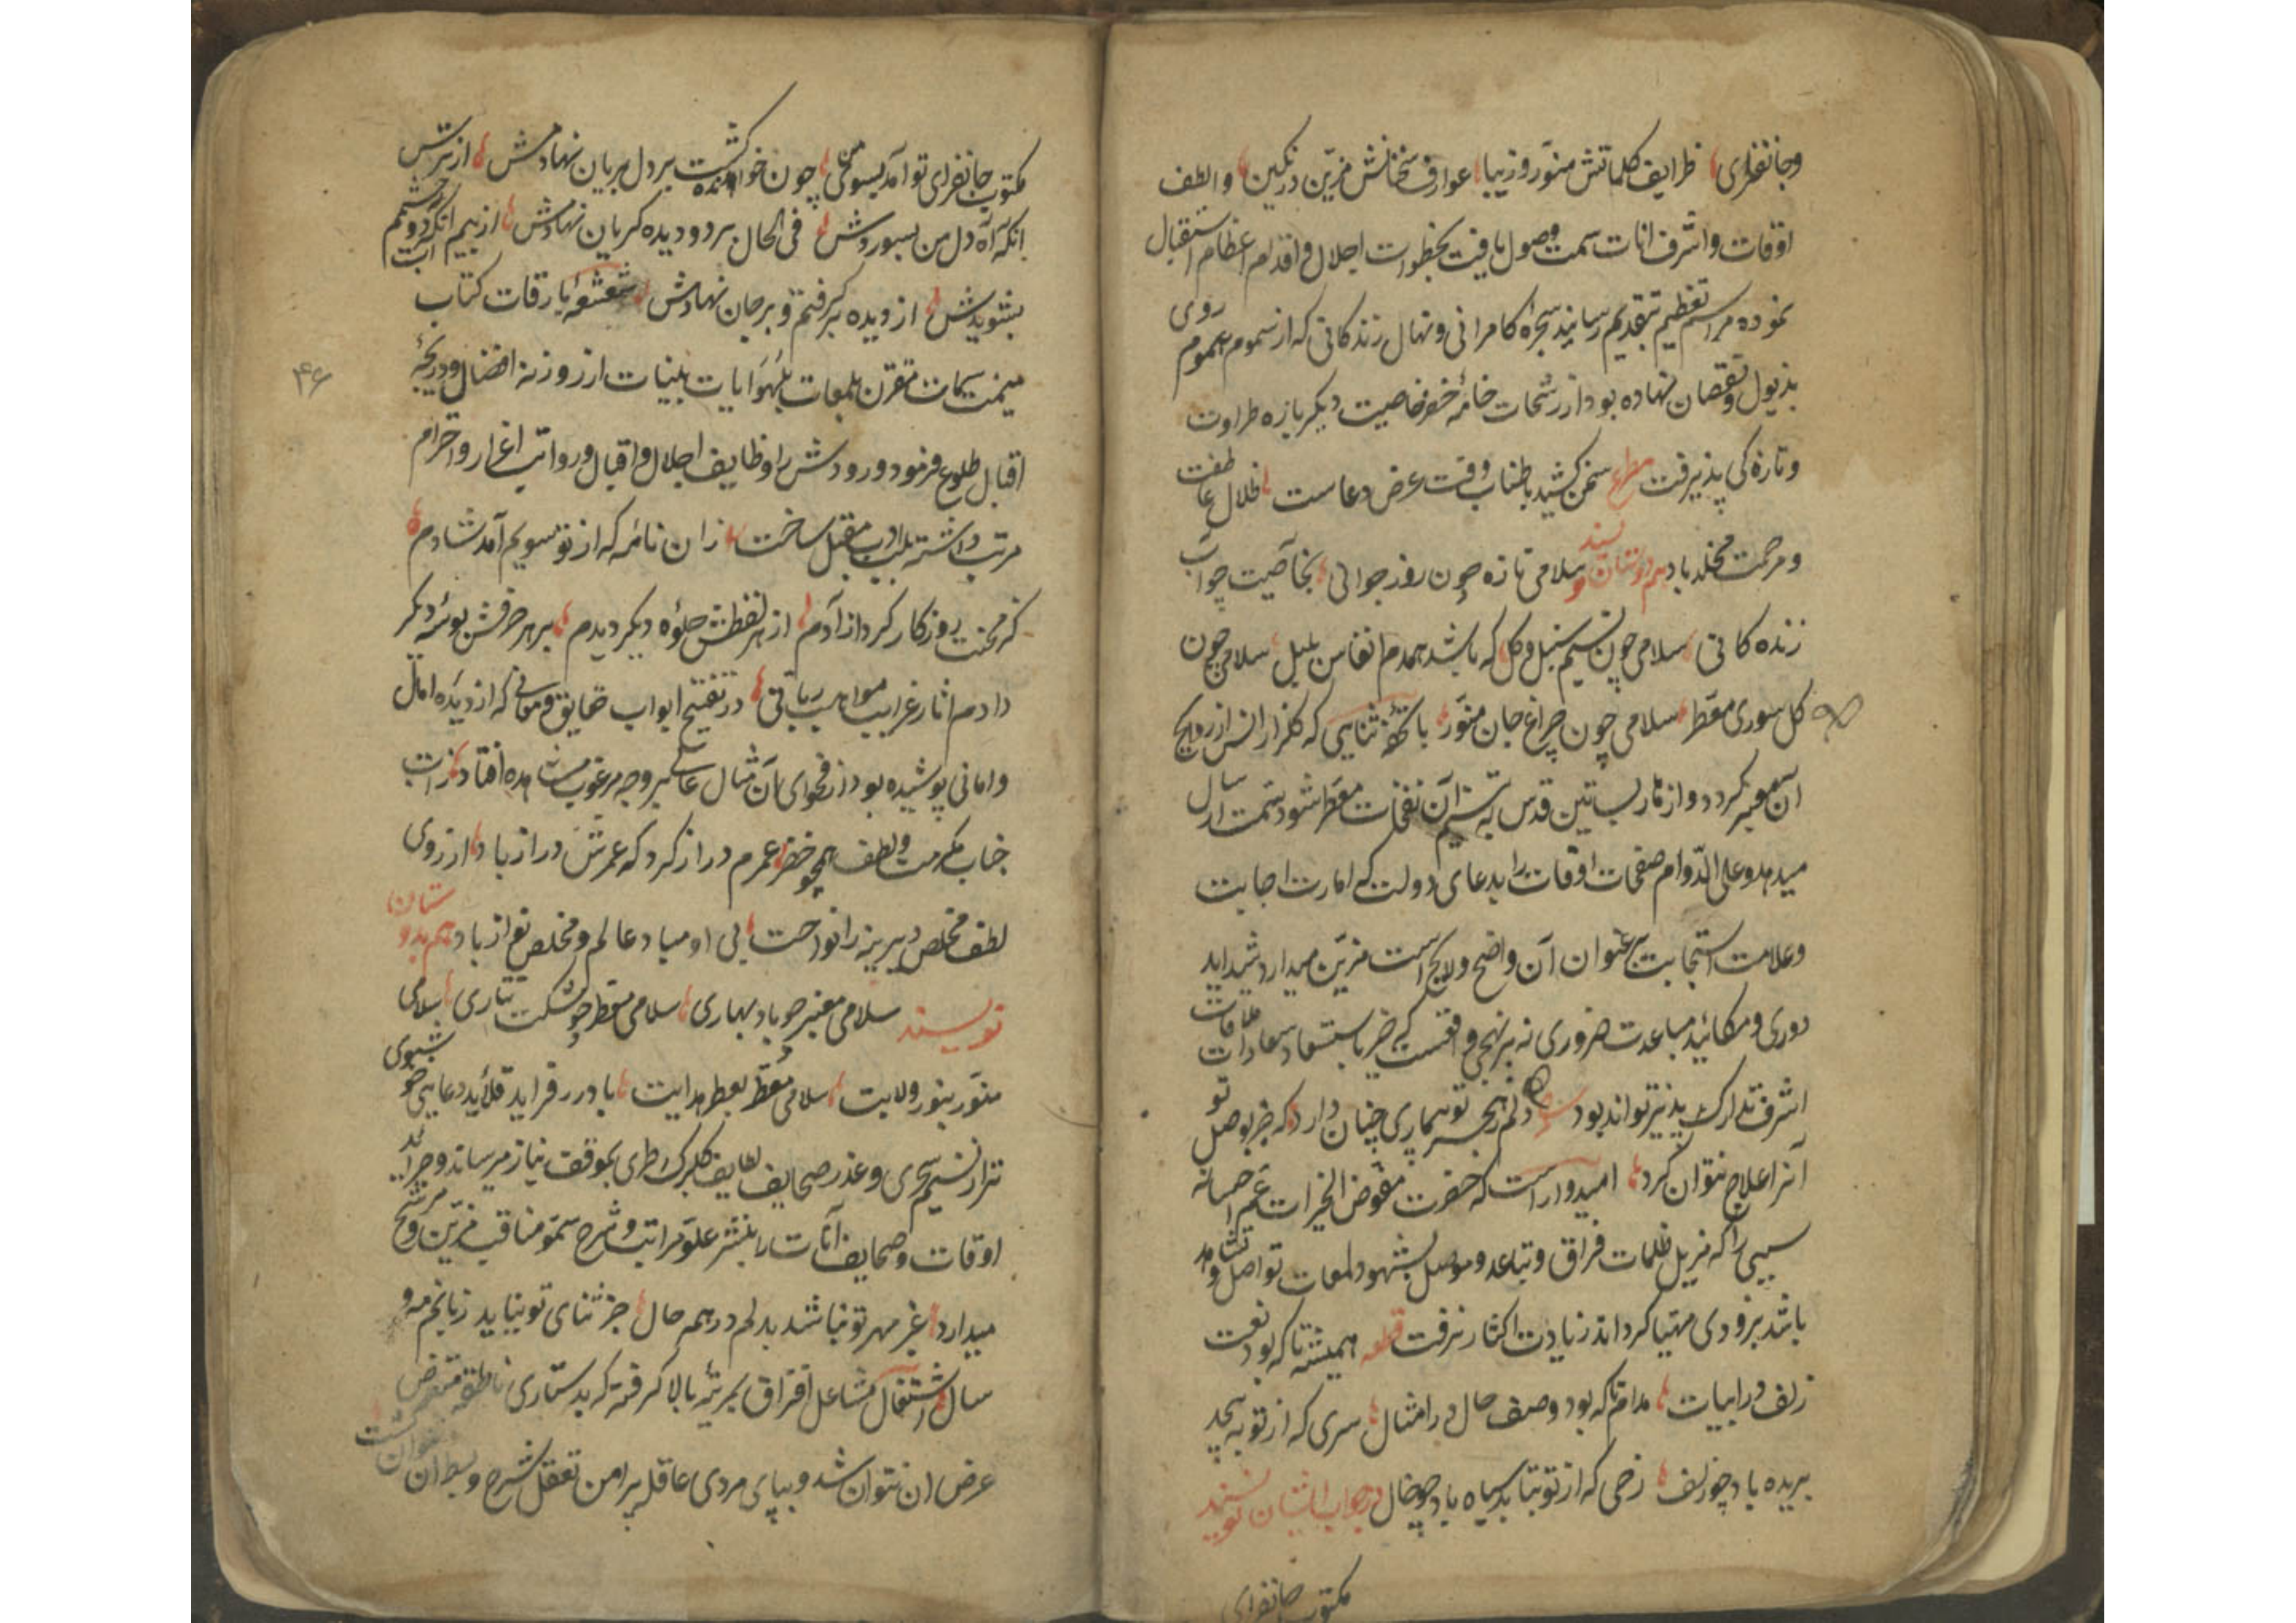 وجانفزای ظرایف کلماتش منور و زیبا عوارف سخنانش مزین و رنکین و الطف
اوقات و اشرف انات سمت وصول یافت بخطوات اجلال و اقدام اعظام استقبال
نموده مراسم تعظیم بتقدیم رسانید شجره کامرانی و نهال زندکانی که از سموم هموم روی
بذبول و نقصان نهاده بود از رشحات خامه خضر خاصیت دیکر باره طراوت
و تازه کی پذیرفت مصرع سخن کشید باطناب وقت عرض دعاست ظلال عاطفت
و مرحمت مخلد باد هم بدوستان نویسند سلامی تازه چون روز جوانی بخاصیت چو آب
زنده کانی سلامی چون نسیم سنبل و کل که باشد همدم انفاس بلبل سلامی چون
کل سوری معطر سلامی چون چراغ جان منور با تحفه ثنایی که کلزار انس از روایح
آن معنبر کردد و ازهار بساتین قدس به نسیم آن نفخات معطر شود سمت ارسال
میدهد و علی الدوام صفحات اوقات را بدعای دولت که امارت اجابت
و علامت استجابت بر عنوان آن واضح و لایح است مزین میدارد شداید
دوری و مکائید مباعدت ضروری نه بر نهجی واقعست که جز باستسعاد سعادات ملاقات
اشرف تدارک پذیر تواند بود دلم ز هجر تو بیماری چنان دارد که جز بوصل تو
آنرا علاج نتوان کرد امیدوار است که حضرت مفوض الخیرات عم احسانه
سببی را که مزیل ظلمات فراق و تباعد و موصل بشهود لمعات تواصل و تشاهد
باشد بزودی مهیا کرداند زیادت اکثار نرفت قطعه همیشه تا که بود نعت
زلف در ابیات مدام تا که بود وصف خال در امثال سری که از تو به پیچد
بریده باد چو زلف رخی که از تو بتابد سیاه باد چو خال در جواب ایشان نویسند
مکتوب جانفزای
مکتوب جانفزای تو آمد بسوی من چون خوانده کشت بر دل بریان نهادمش از ترس
انکه آه دل من بسوزدش فی الحال بر دو دیده کریان نهادمش از بیم انکه آب دو چشمم
بشویدش از دیده بر کرفتم و بر جان نهادمش شعشعه بارقات کتاب
میمنت سمات مقترن بلمعات آیات بینات از روزنه افضال و دریچه
اقبال طلوع فرمود ورودش را وظایف اجلال و اقبال و رواتب اعزاز و احترام
مرتب داشته بلب ادب مقبل ساخت زان نامه که از تو سویم آمد شادم
کز محنت روزکار کرد آزادم از هر لفظش جلوه دیکر دیدم بر هر حرفش بوسه دیکر
دادم اثار غرایب مواهب ربانی در تفتیح ابواب حقایق و معانی که از دیده امال
و امانی پوشیده بود از فحوای آن مثال عالی بر وجه مرغوب مشاهده افتاد ذات
جناب مکرمت و لطف همچو خضر عمرم دراز کرد که عمرش دراز باد از روی
لطف مخلص دیرینه را نواخت بی او مباد عالم و مخلص نواز باد هم بدوستان
نویسند سلامی معنبر چو باد بهاری سلامی معطر چو مشک تتاری سلامی
منور بنور ولایت سلامی معطر بعطر هدایت با درر فراید قلائید دعایی خو شبوی
تر از نسیم سحری و عذر صحایف لطایف کلبرک طری بموقف نیاز میرساند و جراید
اوقات و صحایف آنات را بنشر علو مراتب و شرح سمو مناقب مزین و مرشح
میدارد غیر مهر تو نباشد بدلم در همه حال جز ثنای تو نیاید زبانم مه و
سال اشتعال مشاعل افتراق بمرتبه بالا کرفته که بدستیاری ناطقه متعرض
عرض ان نتوان شد و بپای مردی عاقله پیرامن تعقل شرح و بسط ان نتوان کشت
۴۶